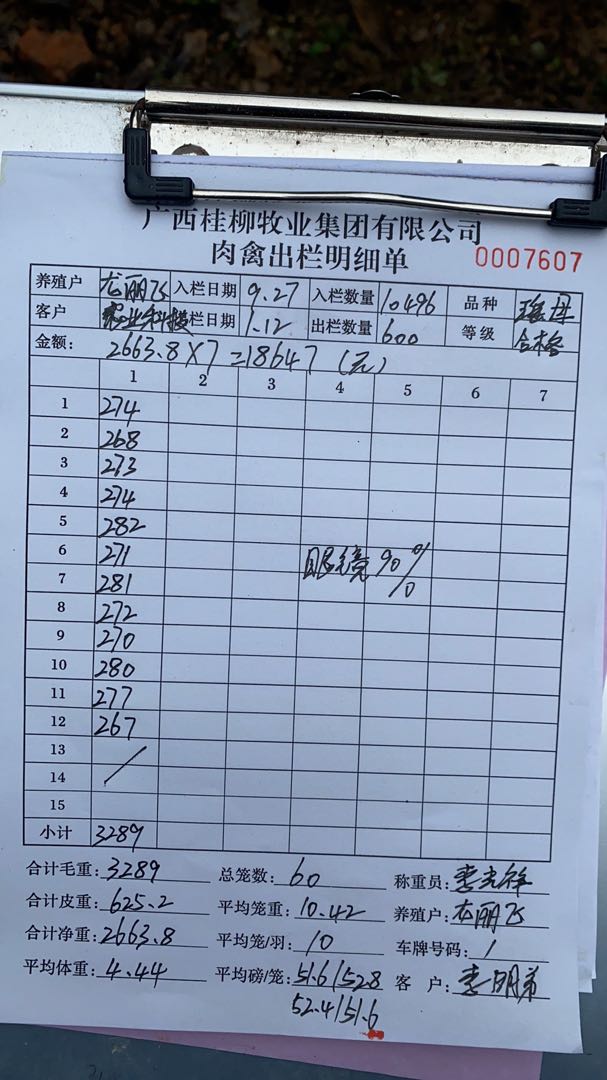 广西桂柳牧业集团有限公司
肉禽出栏明细单 0007607
养殖户 龙丽飞 入栏日期 9.27 入栏数量 10496 品种 瑶
客户 栏日期 1.12 出栏数量 600 等级 合格
金额: 2663.8×7=18647(元)
1 2 3 4 5 6 7
1 274
2 268
3 273
4 274
5 282
6 271 眼镜90%
7 281
8 272
9 270
10 280
11 277
12 267
13
14
15
小计 3289
合计毛重:3289 总笼数:60 称重员:
合计皮重:625.2 平均笼重:10.42 养殖户:龙丽飞
合计净重:2663.8 平均笼/羽:10 车牌号码:1
平均体重:4.44 平均磅/笼:51.6/52.8 客 户:
52.4/51.6